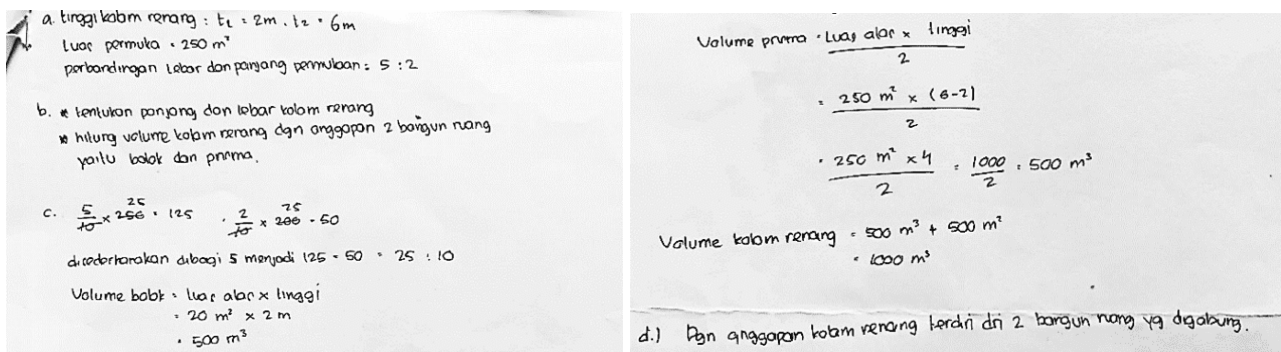 a. tinggi kolam renang : t1 = 2m . t2 = 6m
luas permuka = 250 m²
perbandingan lebar dan panjang permukaan : 5 : 2
b. * tentukan panjang dan lebar kolam renang
* hitung volume kolam renang dgn anggapan 2 bangun ruang
yaitu balok dan prisma.
c. 5/10 x 250 25 = 125 . 2/10 x 200 25 = 50
disederhanakan dibagi 5 menjadi 125 - 50 = 25 : 10
Volume balok = luas alas x tinggi
= 20 m² x 2 m
= 500 m³
Volume prisma = luas alas x tinggi / 2
= 250 m² x (6-2) / 2
= 250 m² x 4 / 2 = 1000 / 2 = 500 m³
Volume kolam renang = 500 m³ + 500 m²
= 1000 m³
d.) Dgn anggapan kolam renang terdiri dri 2 bangun ruang yg digabung.